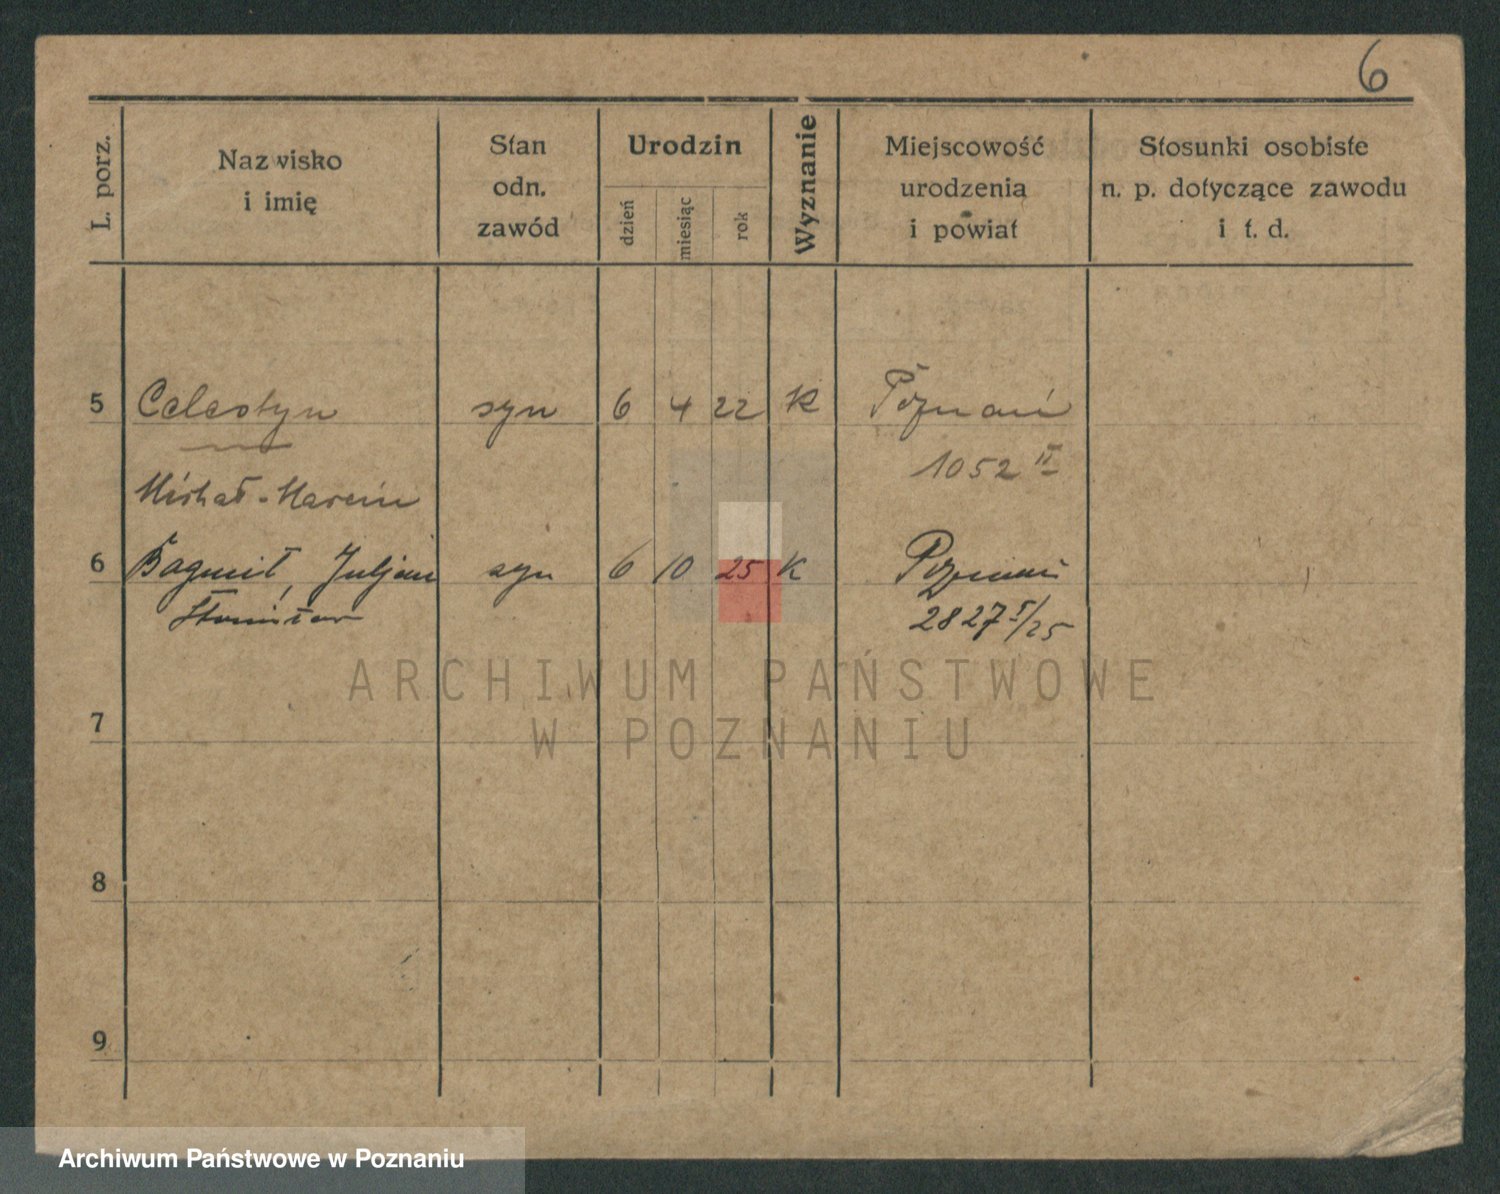 6
L. porz.
Nazwisko
i imię
Stan
odn.
zawód
Urodzin
dzień
miesiąc
rok
Wyznanie
Miejscowość
urodzenia
i powiat
Stosunki osobiste
n. p. dotyczące zawodu
i t. d.
5 Celestyn syn 6 4 22 K Poznań
1052 II
Michał-Marcin
6 Bogumił, Juljan syn 6 10 25 K Poznań
Stanisław 2827 I/25
ARCHIWUM PAŃSTWOWE
W POZNANIU
7
8
9
Archiwum Państwowe w Poznaniu